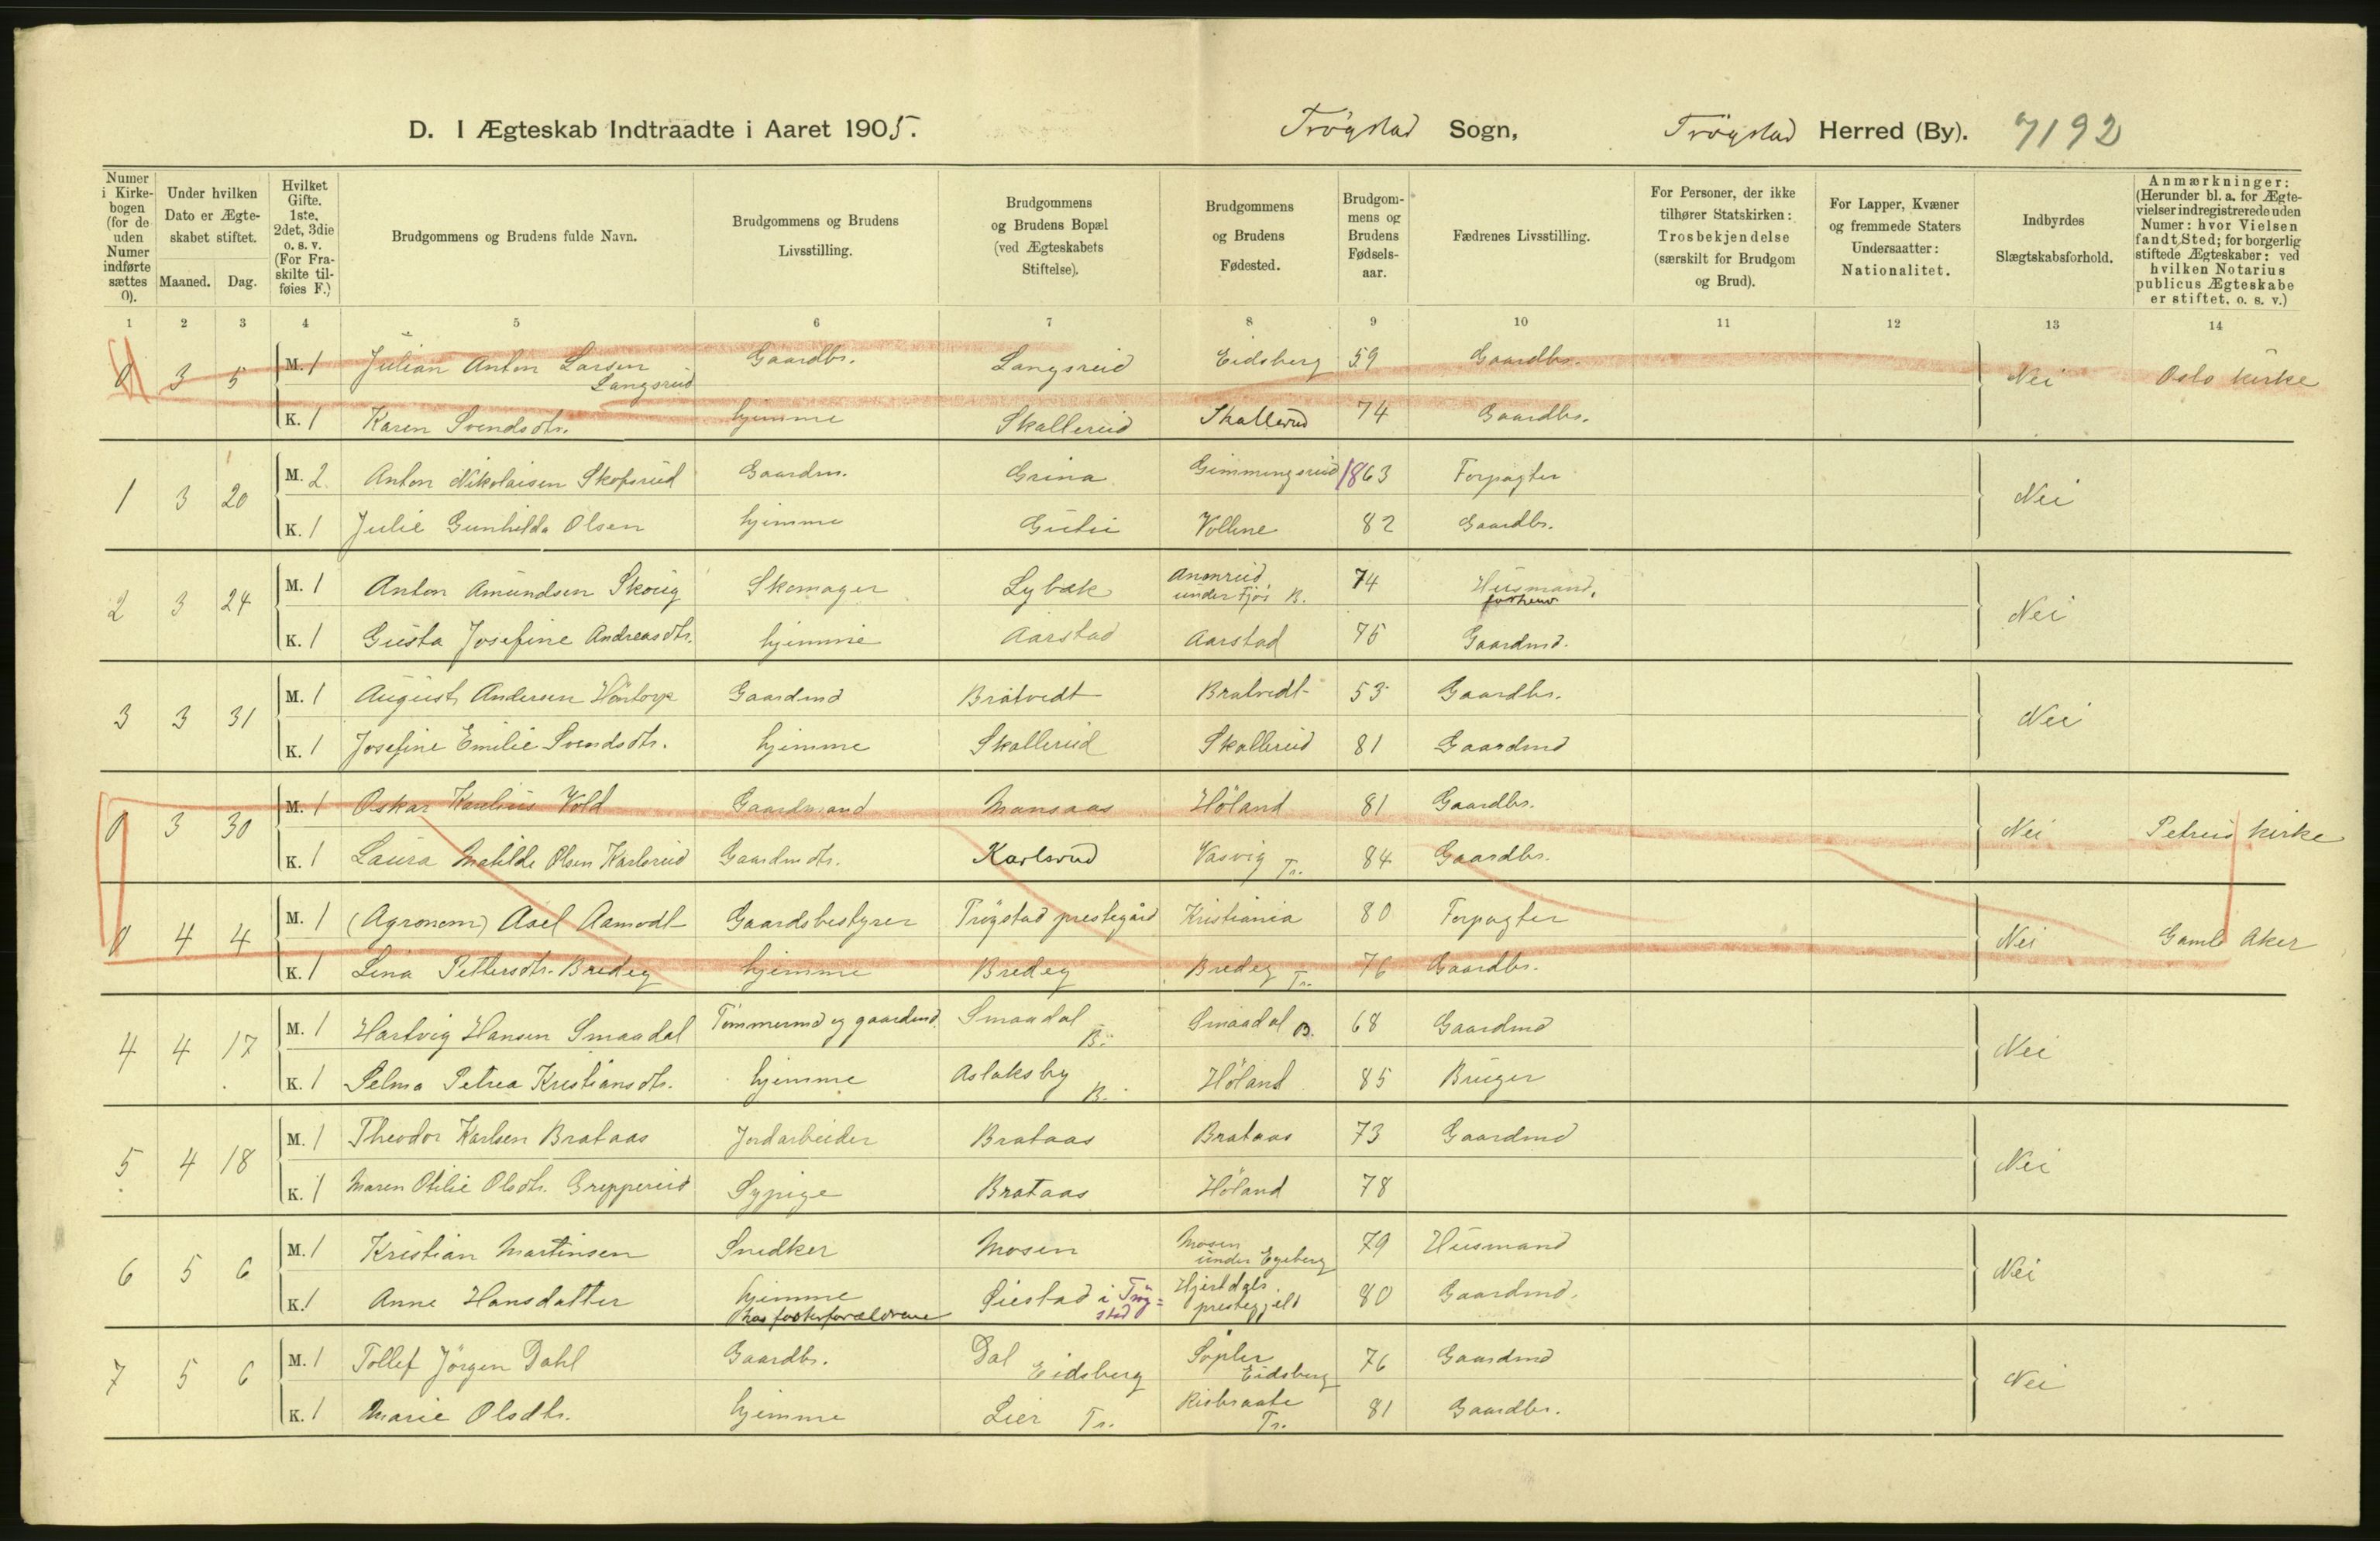 D. I Ægteskab Indtraadte i Aaret 1905. Trøgstad Sogn, Trøgstad Herred (By). 7192
Numer i Kirkebogen (for de uden Numer indførte sættes 0).
Under hvilken Dato er Ægteskabet stiftet.
Maaned. Dag.
Hvilket Gifte. 1ste, 2det, 3die o. s. v. (For Fraskilte tilføies F.)
Brudgommens og Brudens fulde Navn.
Brudgommens og Brudens Livsstilling.
Brudgommens og Brudens Bopæl (ved Ægteskabets Stiftelse).
Brudgommens og Brudens Fødested.
Brudgommens og Brudens Fødselsaar.
Fædrenes Livsstilling.
For Personer, der ikke tilhører Statskirken: Trosbekjendelse (særskilt for Brudgom og Brud).
For Lapper, Kvæner og fremmede Staters Undersaatter: Nationalitet.
Indbyrdes Slægtskabsforhold.
Anmærkninger: (Herunder bl. a. for Ægtevielser indregistrerede uden Numer: hvor Vielsen fandt Sted; for borgerlig stiftede Ægteskaber: ved hvilken Notarius publicus Ægteskabe er stiftet, o. s. v.)
1 2 3 4 5 6 7 8 9 10 11 12 13 14
0 3 5 M. 1 Julian Anton Larsen Langsrud Gaardbr. Langsrud Eidsberg 59 Gaardbr. Nei Oslo kirke
K. 1 Karen Svendsdtr. hjemme Skallerud Skallerud 74 Gaardbr.
1 3 20 M. 2 Anton Nikolaisen Skofsrud Gaardm. Grina Gimmingsrud 1863 Forpagter Nei
K. 1 Julie Gunhilda Olsen hjemme Vollene 82 Gaardbr.
2 3 24 M. 1 Anton Amundsen Skoug Skomager Lybæk under B. 74 Husmand, forhenv Nei
K. 1 Gusta Josefine Andreasdtr. hjemme Aarstad Aarstad 75 Gaardmd.
3 3 31 M. 1 August Andersen Gaardmd Bratvedt Bratvedt 53 Gaardbr. Nei
K. 1 Josefine Emilie Svendsdtr. hjemme Skallerud Skallerud 81 Gaardmd
0 3 30 M. 1 Oskar Karelius Vold Gaardmand Mansaas Höland 81 Gaardbr. Nei Petrus kirke
K. 1 Laura Matilde Olsen Karlsrud Gaardmdtr. Karlsrud Vasvig Tr. 84 Gaardbr.
0 4 4 M. 1 (Agronom) Axel Aamodt Gaardsbestyrer Trögstad prestegård Kristiania 80 Forpagter Nei Gamle Aker
K. 1 Lina Pettersdtr. Bredeg hjemme Bredeg Bredeg Tr. 76 Gaardbr.
4 4 17 M. 1 Hartvig Hansen Smaadal Tömmermd og gaardmd. Smaadal B. Smaadal B. 68 Gaardmd Nei
K. 1 Selma Petrea Kristiansdtr. hjemme Aslaksby B. Höland 85 Bruger
5 4 18 M. 1 Theodor Karlsen Brataas Jordarbeider Brataas Brataas 73 Gaardmd Nei
K. 1 Maren Otilie Olsdtr. Greppererud Sypige Brataas Höland 78
6 5 6 M. 1 Kristian Martinsen Snedker Mosen Mosen under Egeberg 79 Husmand Nei
K. 1 Anne Hansdatter hjemme hos fosterforældrene i Trög=stad Hjertdals prestegjeld 80 Gaardmd.
7 5 6 M. 1 Tollef Jörgen Dahl Gaardbr. Dal Eidsberg Söpler Eidsberg 76 Gaardmd Nei
K. 1 Marie Olsdtr. hjemme Lier Tr. Risbraate Tr. 81 Gaardbr.